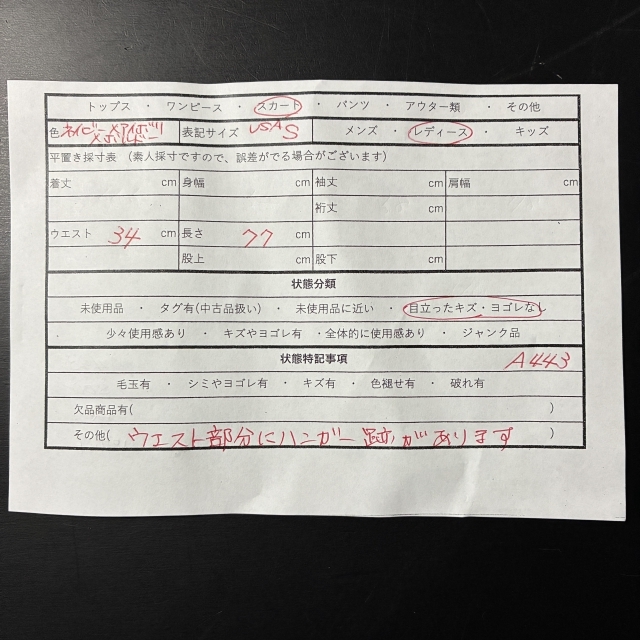 トップス ・ ワンピース ・ スカート ・ パンツ ・ アウター類 ・ その他
色 ネイビー×アイボリー 表記サイズ USA S メンズ ・ レディース ・ キッズ
平置き採寸表 (素人採寸ですので、誤差がでる場合がございます)
着丈 cm 身幅 cm 袖丈 cm 肩幅 cm
裄丈 cm
ウエスト 34 cm 長さ 77 cm
股上 cm 股下 cm
状態分類
未使用品 ・ タグ有(中古品扱い) ・ 未使用品に近い ・ 目立ったキズ・ヨゴレなし
少々使用感あり ・ キズやヨゴレ有 ・全体的に使用感あり ・ ジャンク品
状態特記事項 A443
毛玉有 ・ シミやヨゴレ有 ・ キズ有 ・ 色褪せ有 ・ 破れ有
欠品商品有( )
その他( ウエスト部分にハンガー跡があります )